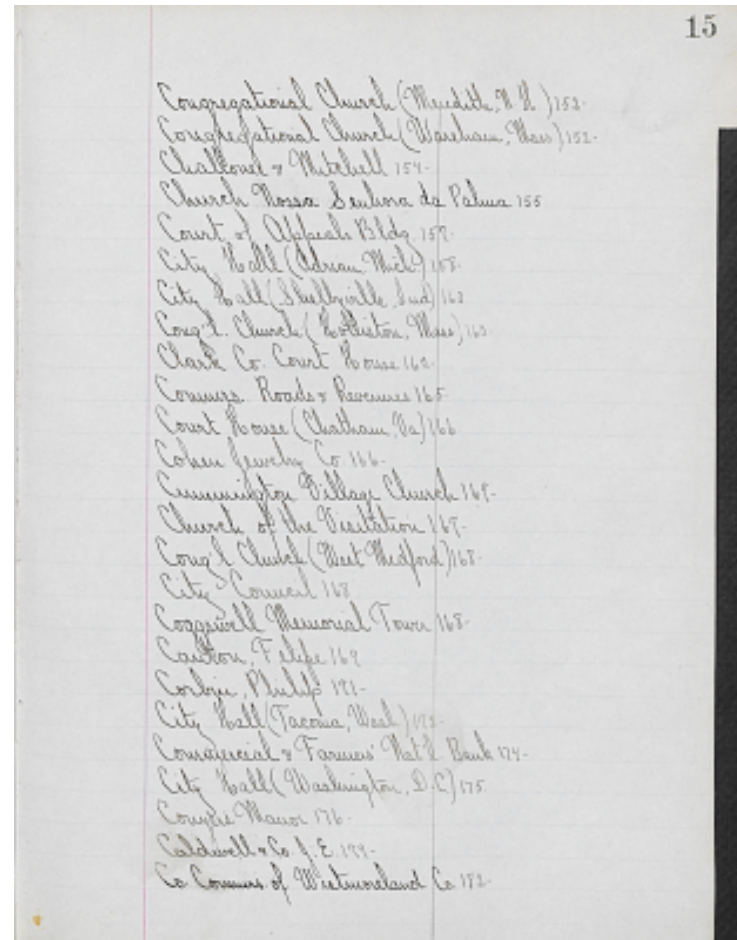 15
Congregational Church (Meredith, N.H.) 152-
Congregational Church (Wareham, Mass) 152-
Challoner & Mitchell 154-
Church Nossa Senhora da Palma 155
Court of Appeals Bldg 157-
City Hall (Adrian, Mich.) 158-
City Hall (Shelbyville, Ind) 163
Cong'l. Church (Holliston, Mass) 163-
Clark Co. Court House 162-
Commrs. Roads & Revenues 165-
Court House (Chatham, Va) 166
Cohen Jewelry Co. 166-
Cummington Village Church 167-
Church of the Visitation 167-
Cong'l Church (West Medford) 168-
City Council 168
Cogswell Memorial Tower 168-
Felipe 169
Corbin, Philip 171-
City Hall (Tacoma, Wash)
Commercial & Farmers' Nat'l. Bank 174-
City Hall (Washington, D.C.) 175
Manor 176-
Caldwell & Co. J. E. 177-
Co Commrs of Westmoreland Co 182-